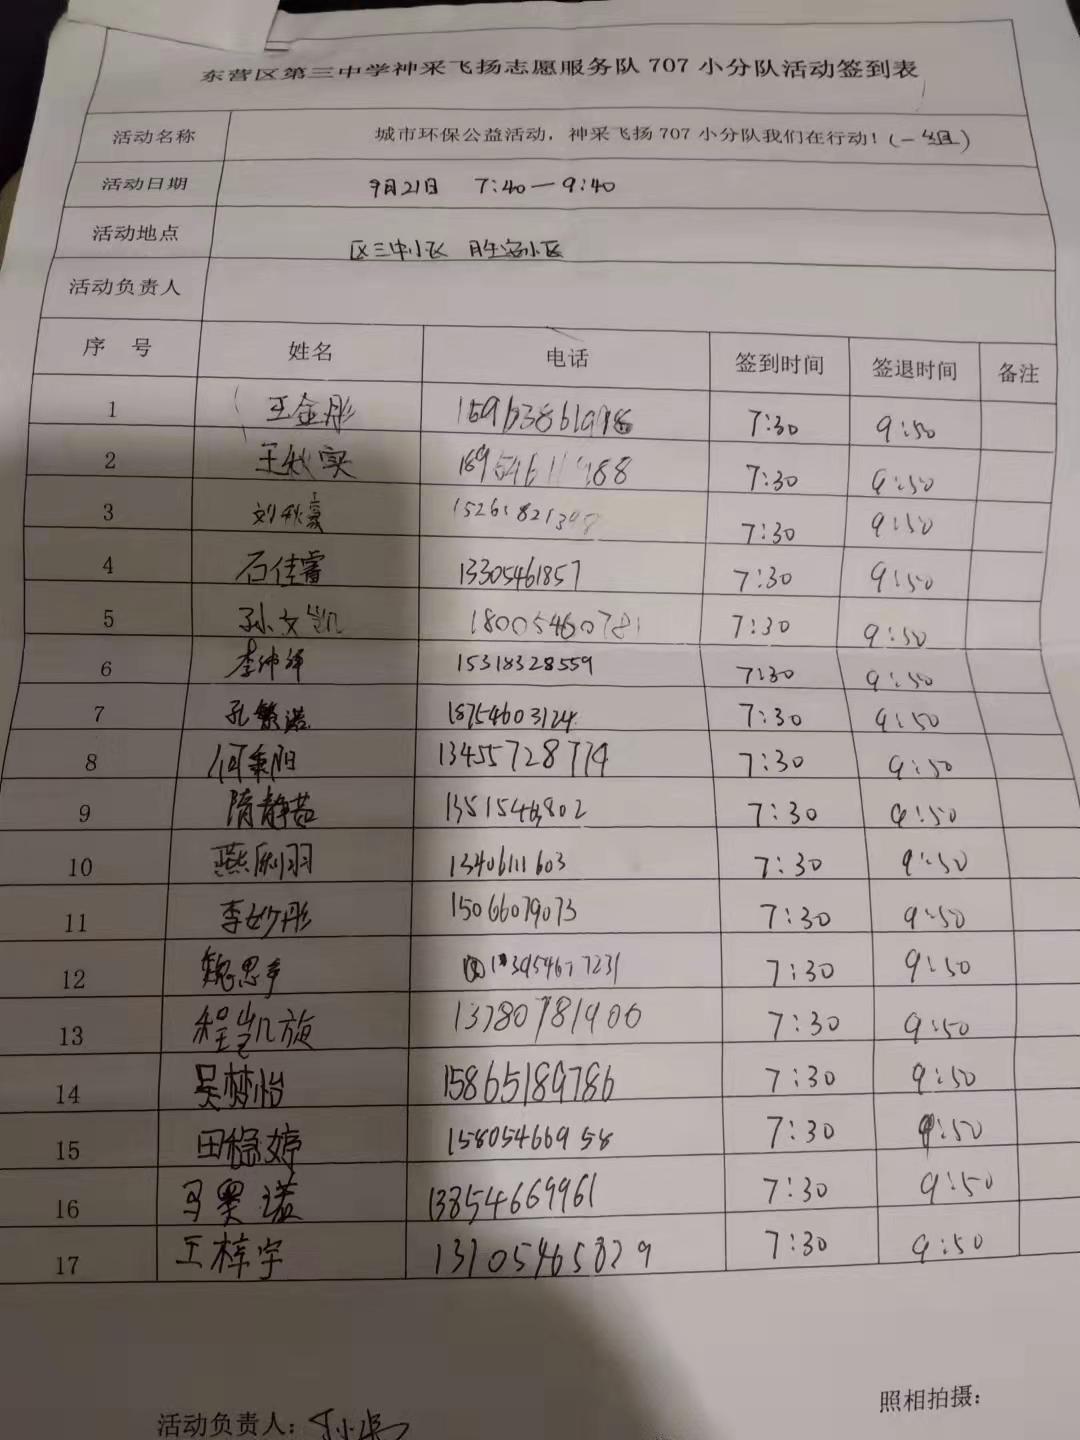 东营区第三中学神采飞扬志愿服务队 707 小分队活动签到表
活动名称 城市环保公益活动，神采飞扬 707 小分队我们在行动！(一组)
活动日期 9月21日 7:40—9:40
活动地点 区三中小区
活动负责人
序 号 姓名 电话 签到时间 签退时间 备注
1 王金彤 7:30 9:50
2 王秋实 7:30 9:50
3 刘秋豪 7:30 9:50
4 石佳睿 13305461857 7:30 9:50
5 孙文凯 18005460781 7:30 9:50
6 15318328559 7:30 9:50
7 孔繁诺 18754603124 7:30 9:50
8 何秉阳 13455728774 7:30 9:50
9 隋静茹 7:30 9:50
10 13406111603 7:30 9:50
11 李妙彤 15066079073 7:30 9:50
12 7:30 9:50
13 程凯旋 13780781906 7:30 9:50
14 吴梦怡 15865189786 7:30 9:50
15 15805466958 7:30 9:50
16 马墨诺 13854669961 7:30 9:50
17 王梓宇 13705465829 7:30 9:50
照相拍摄：
活动负责人：